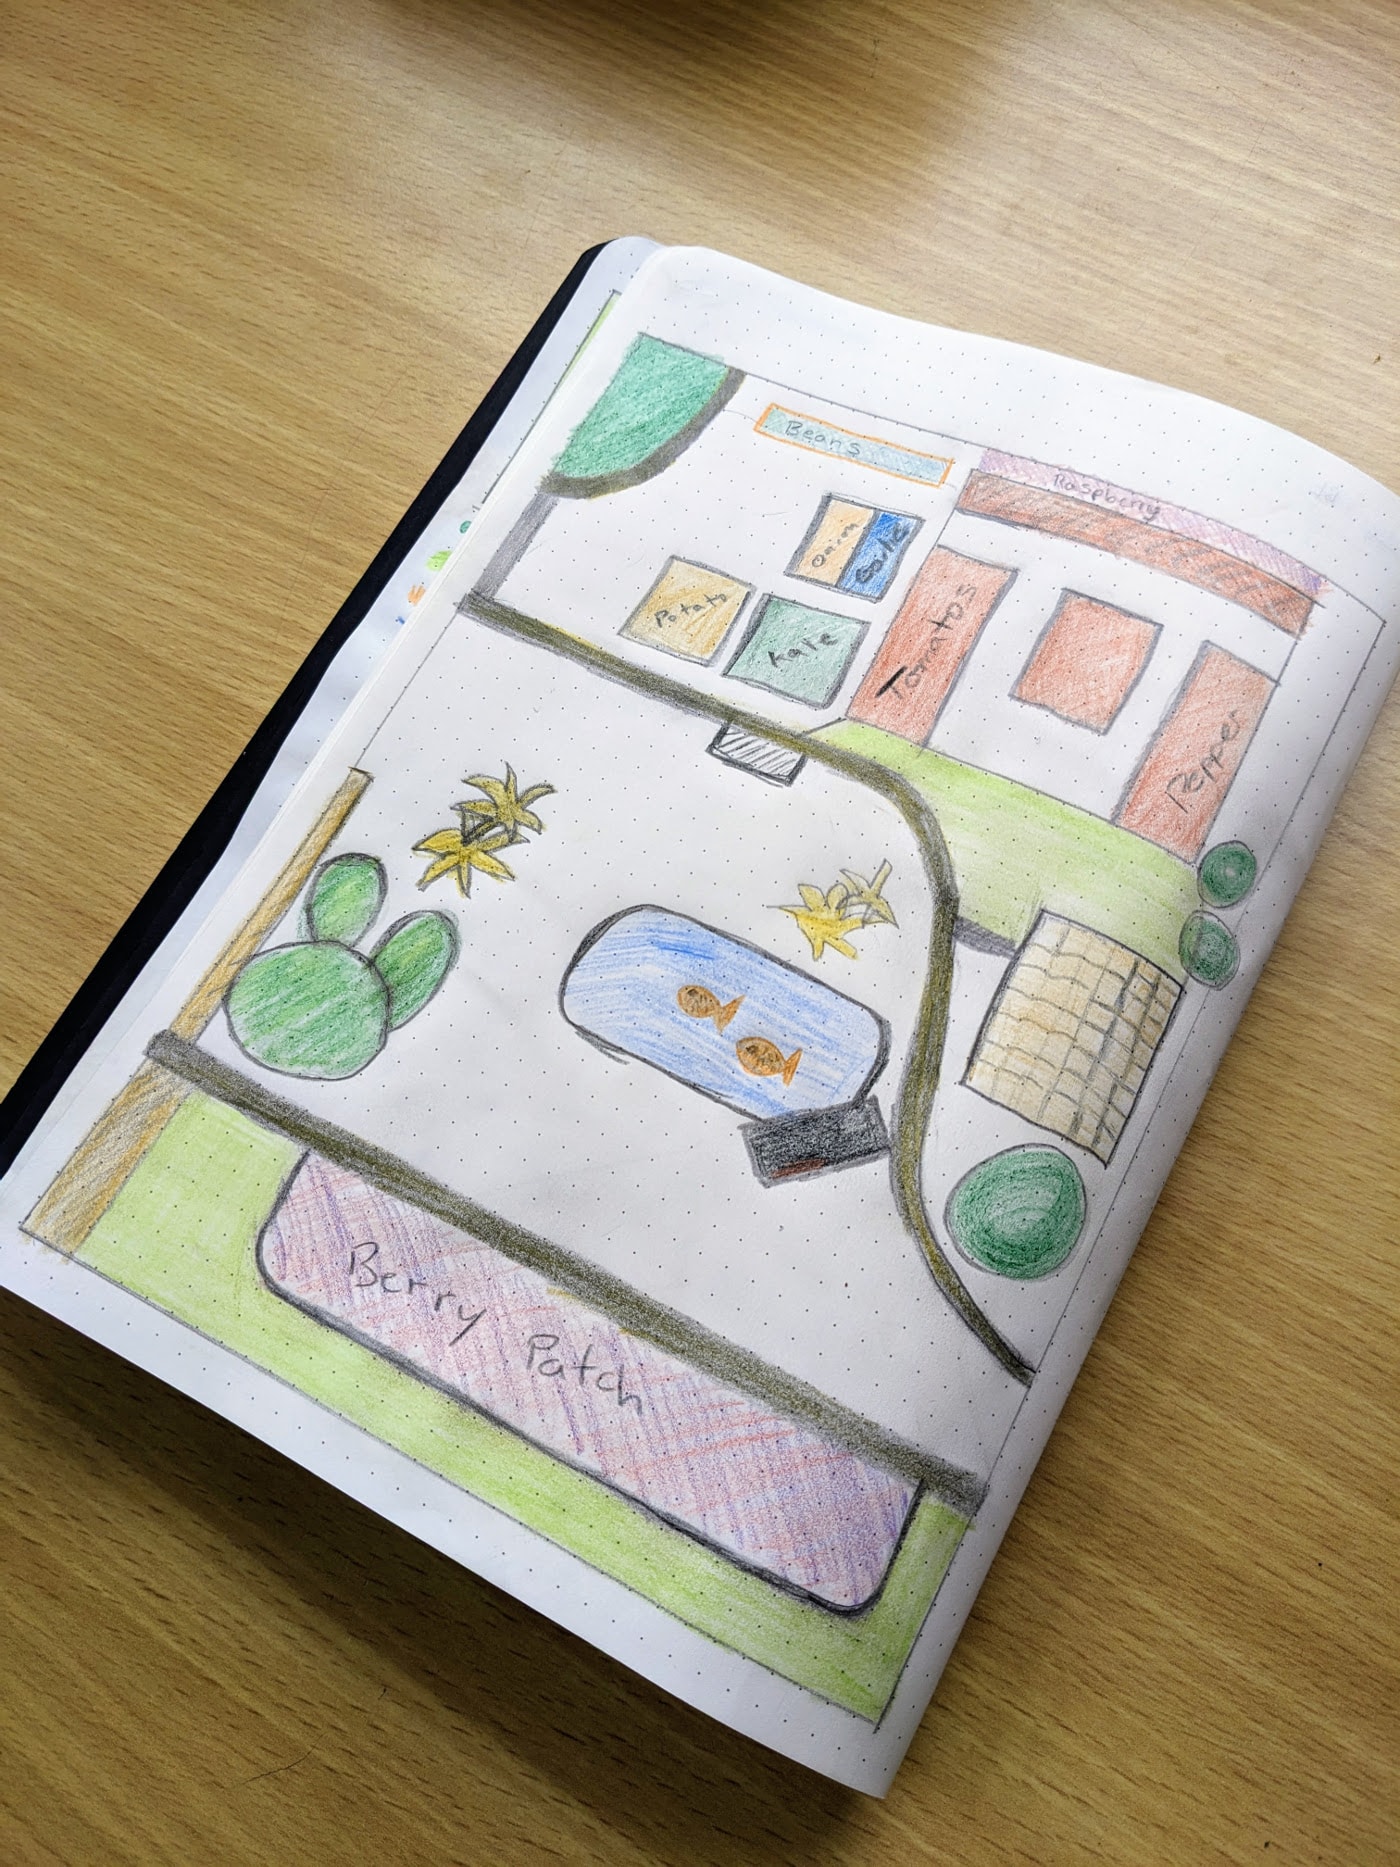 Beans
Raspberry
Onion
Garlic
Potato
Kale
Tomatos
Pepper
Berry Patch